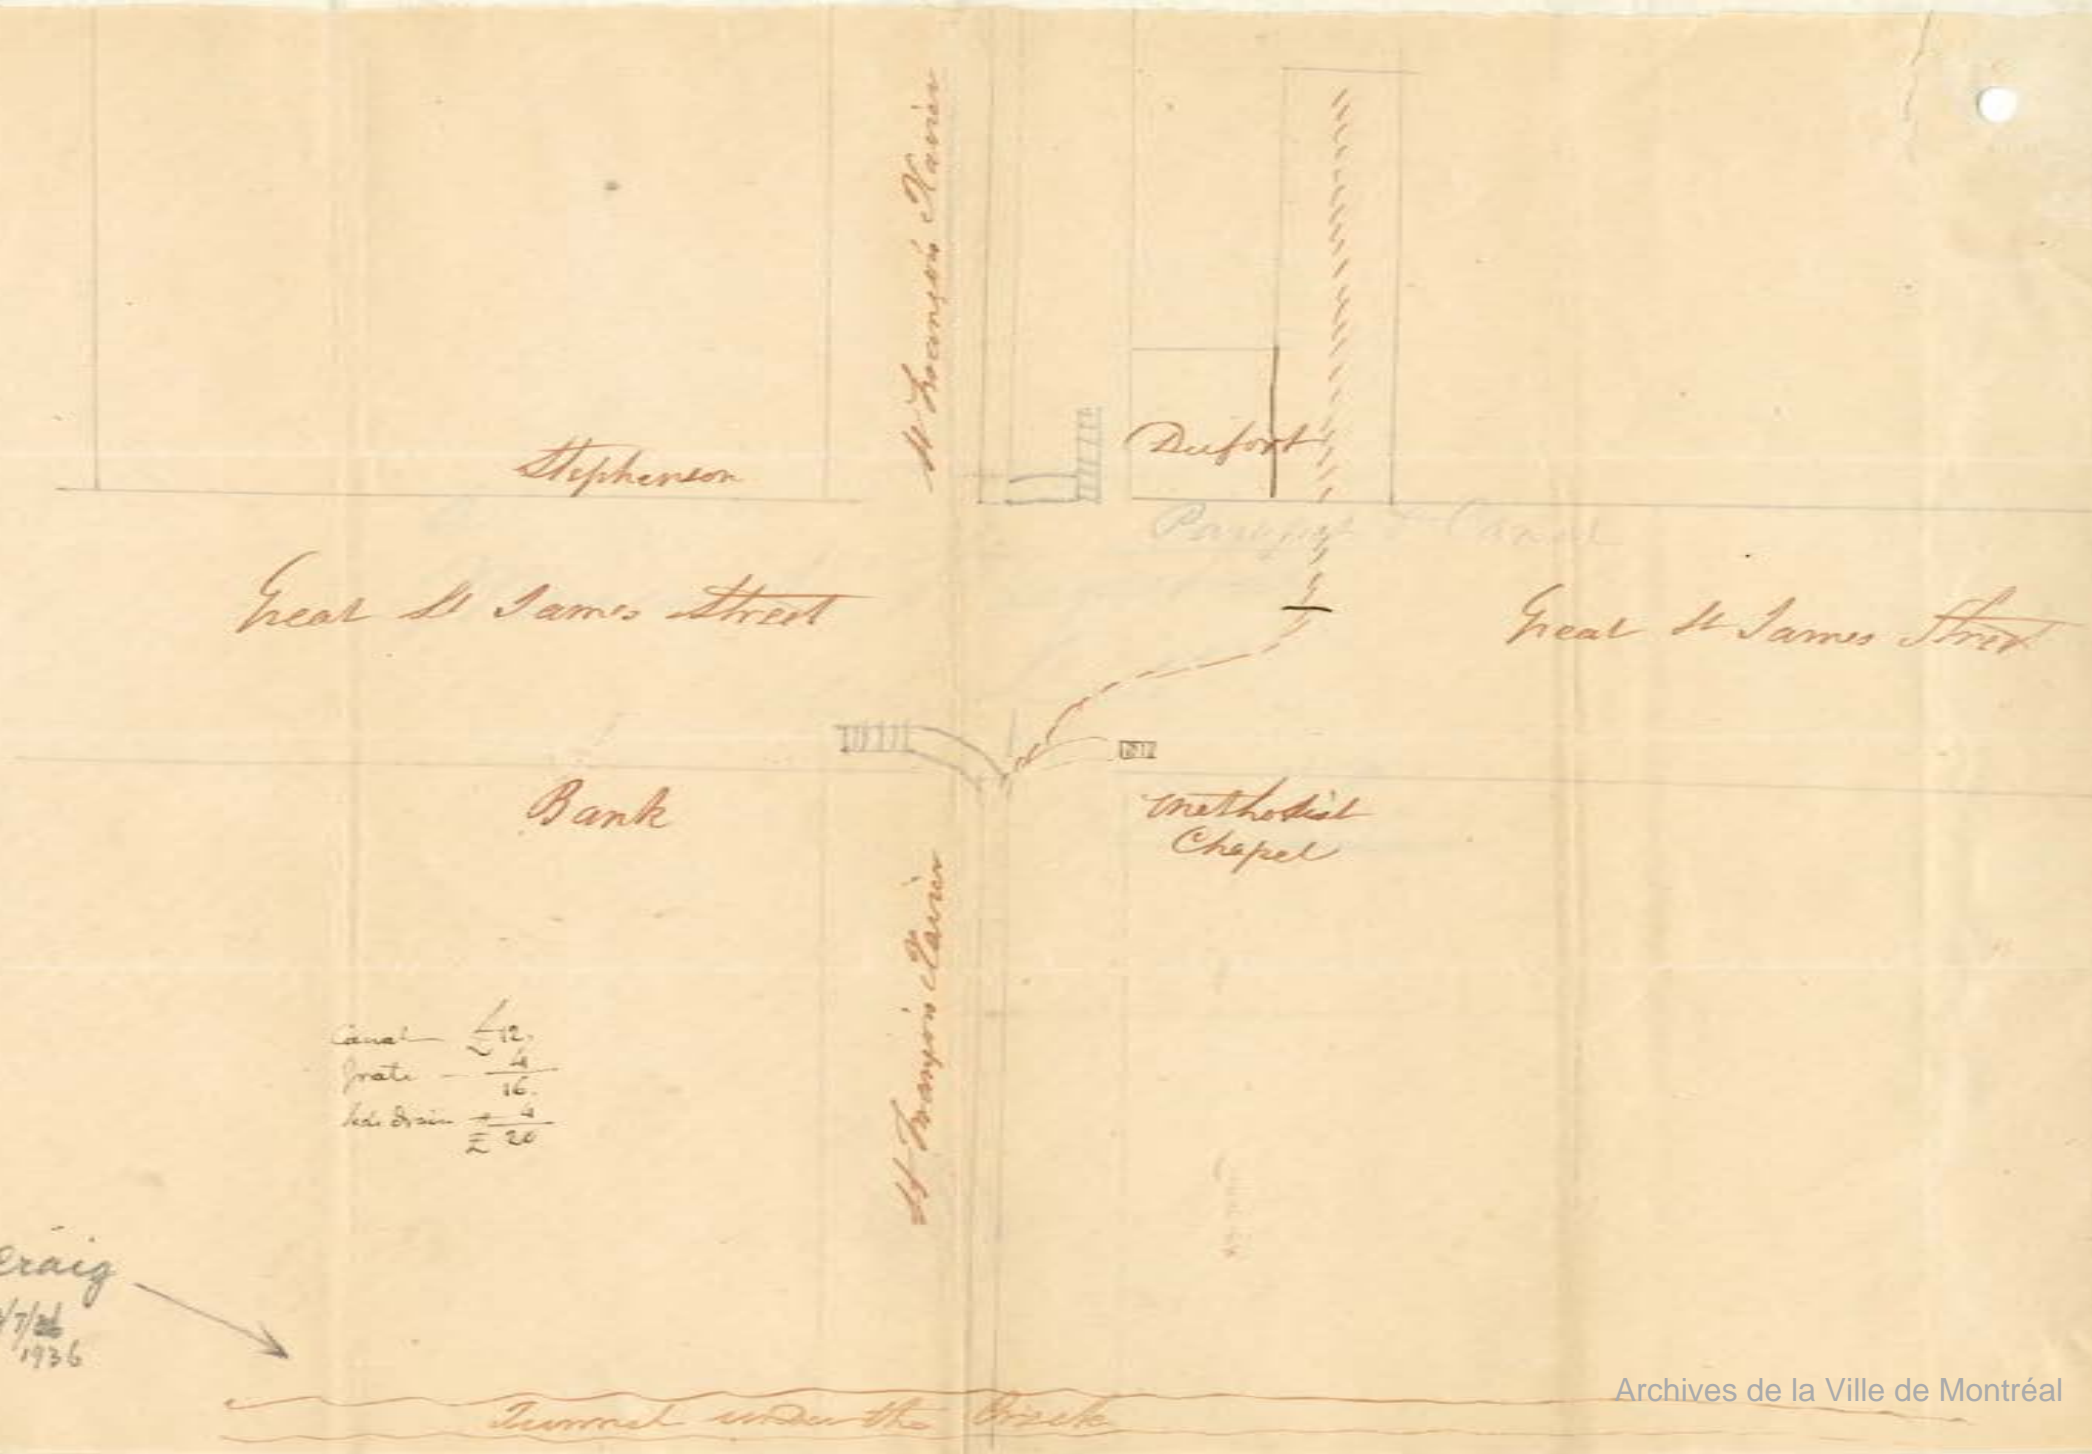 St François Xavier
Stephenson
Dufort
Canal
Great St James Street
Great St James Street
Bank
Methodist
Chapel
St François Xavier
Canal — £12.
Grate — 4
16.
drain 4
£ 20
Craig
/7/36
1936
Tunnel under the Creek
Archives de la Ville de Montréal